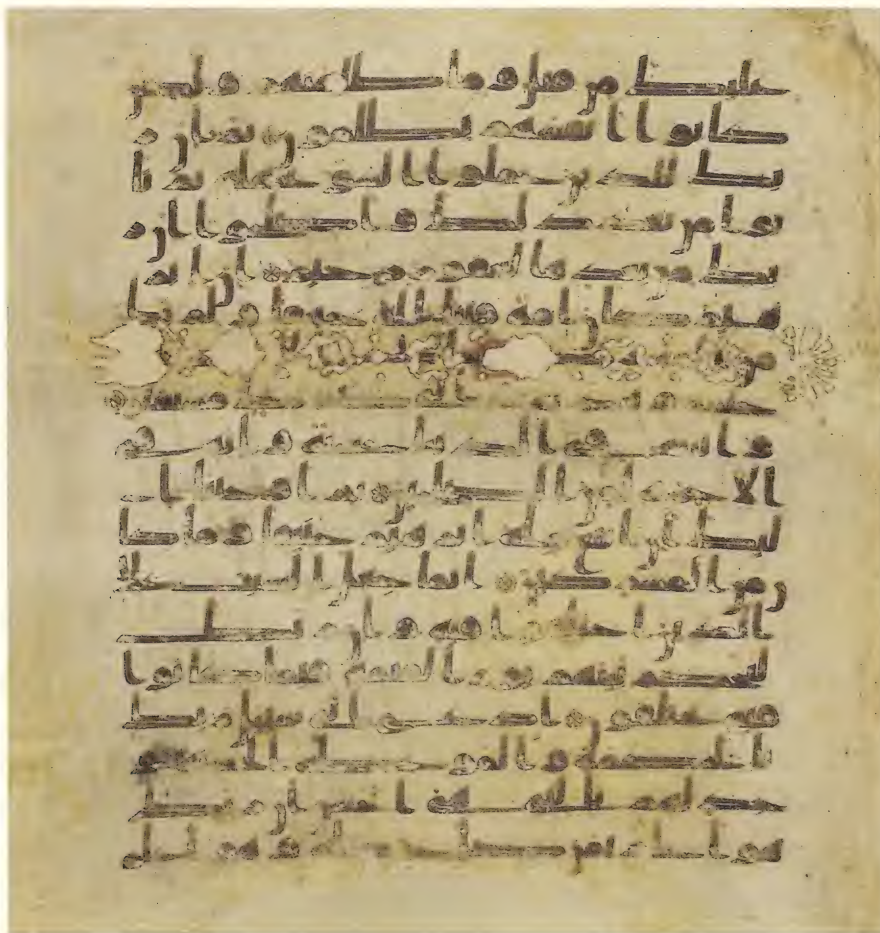 عليك من قبل وما ظلمنهم ولكن
كانوا انفسهم يظلمون ثم ان ر
بك للذين عملوا السو بجهله ثم تا
بوا من بعد ذلك واصلحوا ان ر
بك من بعدها لغفور رحيم ان ابر
هيم كان امة قنتا لله حنيفا ولم يك
من
وهديه الى صرط مستقيم
واتينه في الدنيا حسنة وانه في
الاخرة لمن الصلحين ثم اوحينا ا
ليك ان اتبع ملة ابرهيم حنيفا وما كا
ن من المشركين انما جعل السبت على
الذين اختلفوا فيه وان ربك
ليحكم بينهم يوم القيمة فيما كانوا
فيه يختلفون ادع الى سبيل ربك
بالحكمة والموعظة الحسنة و
جدلهم بالتي هي احسن ان ربك
هو اعلم بمن ضل عن سبيله وهو اعلم